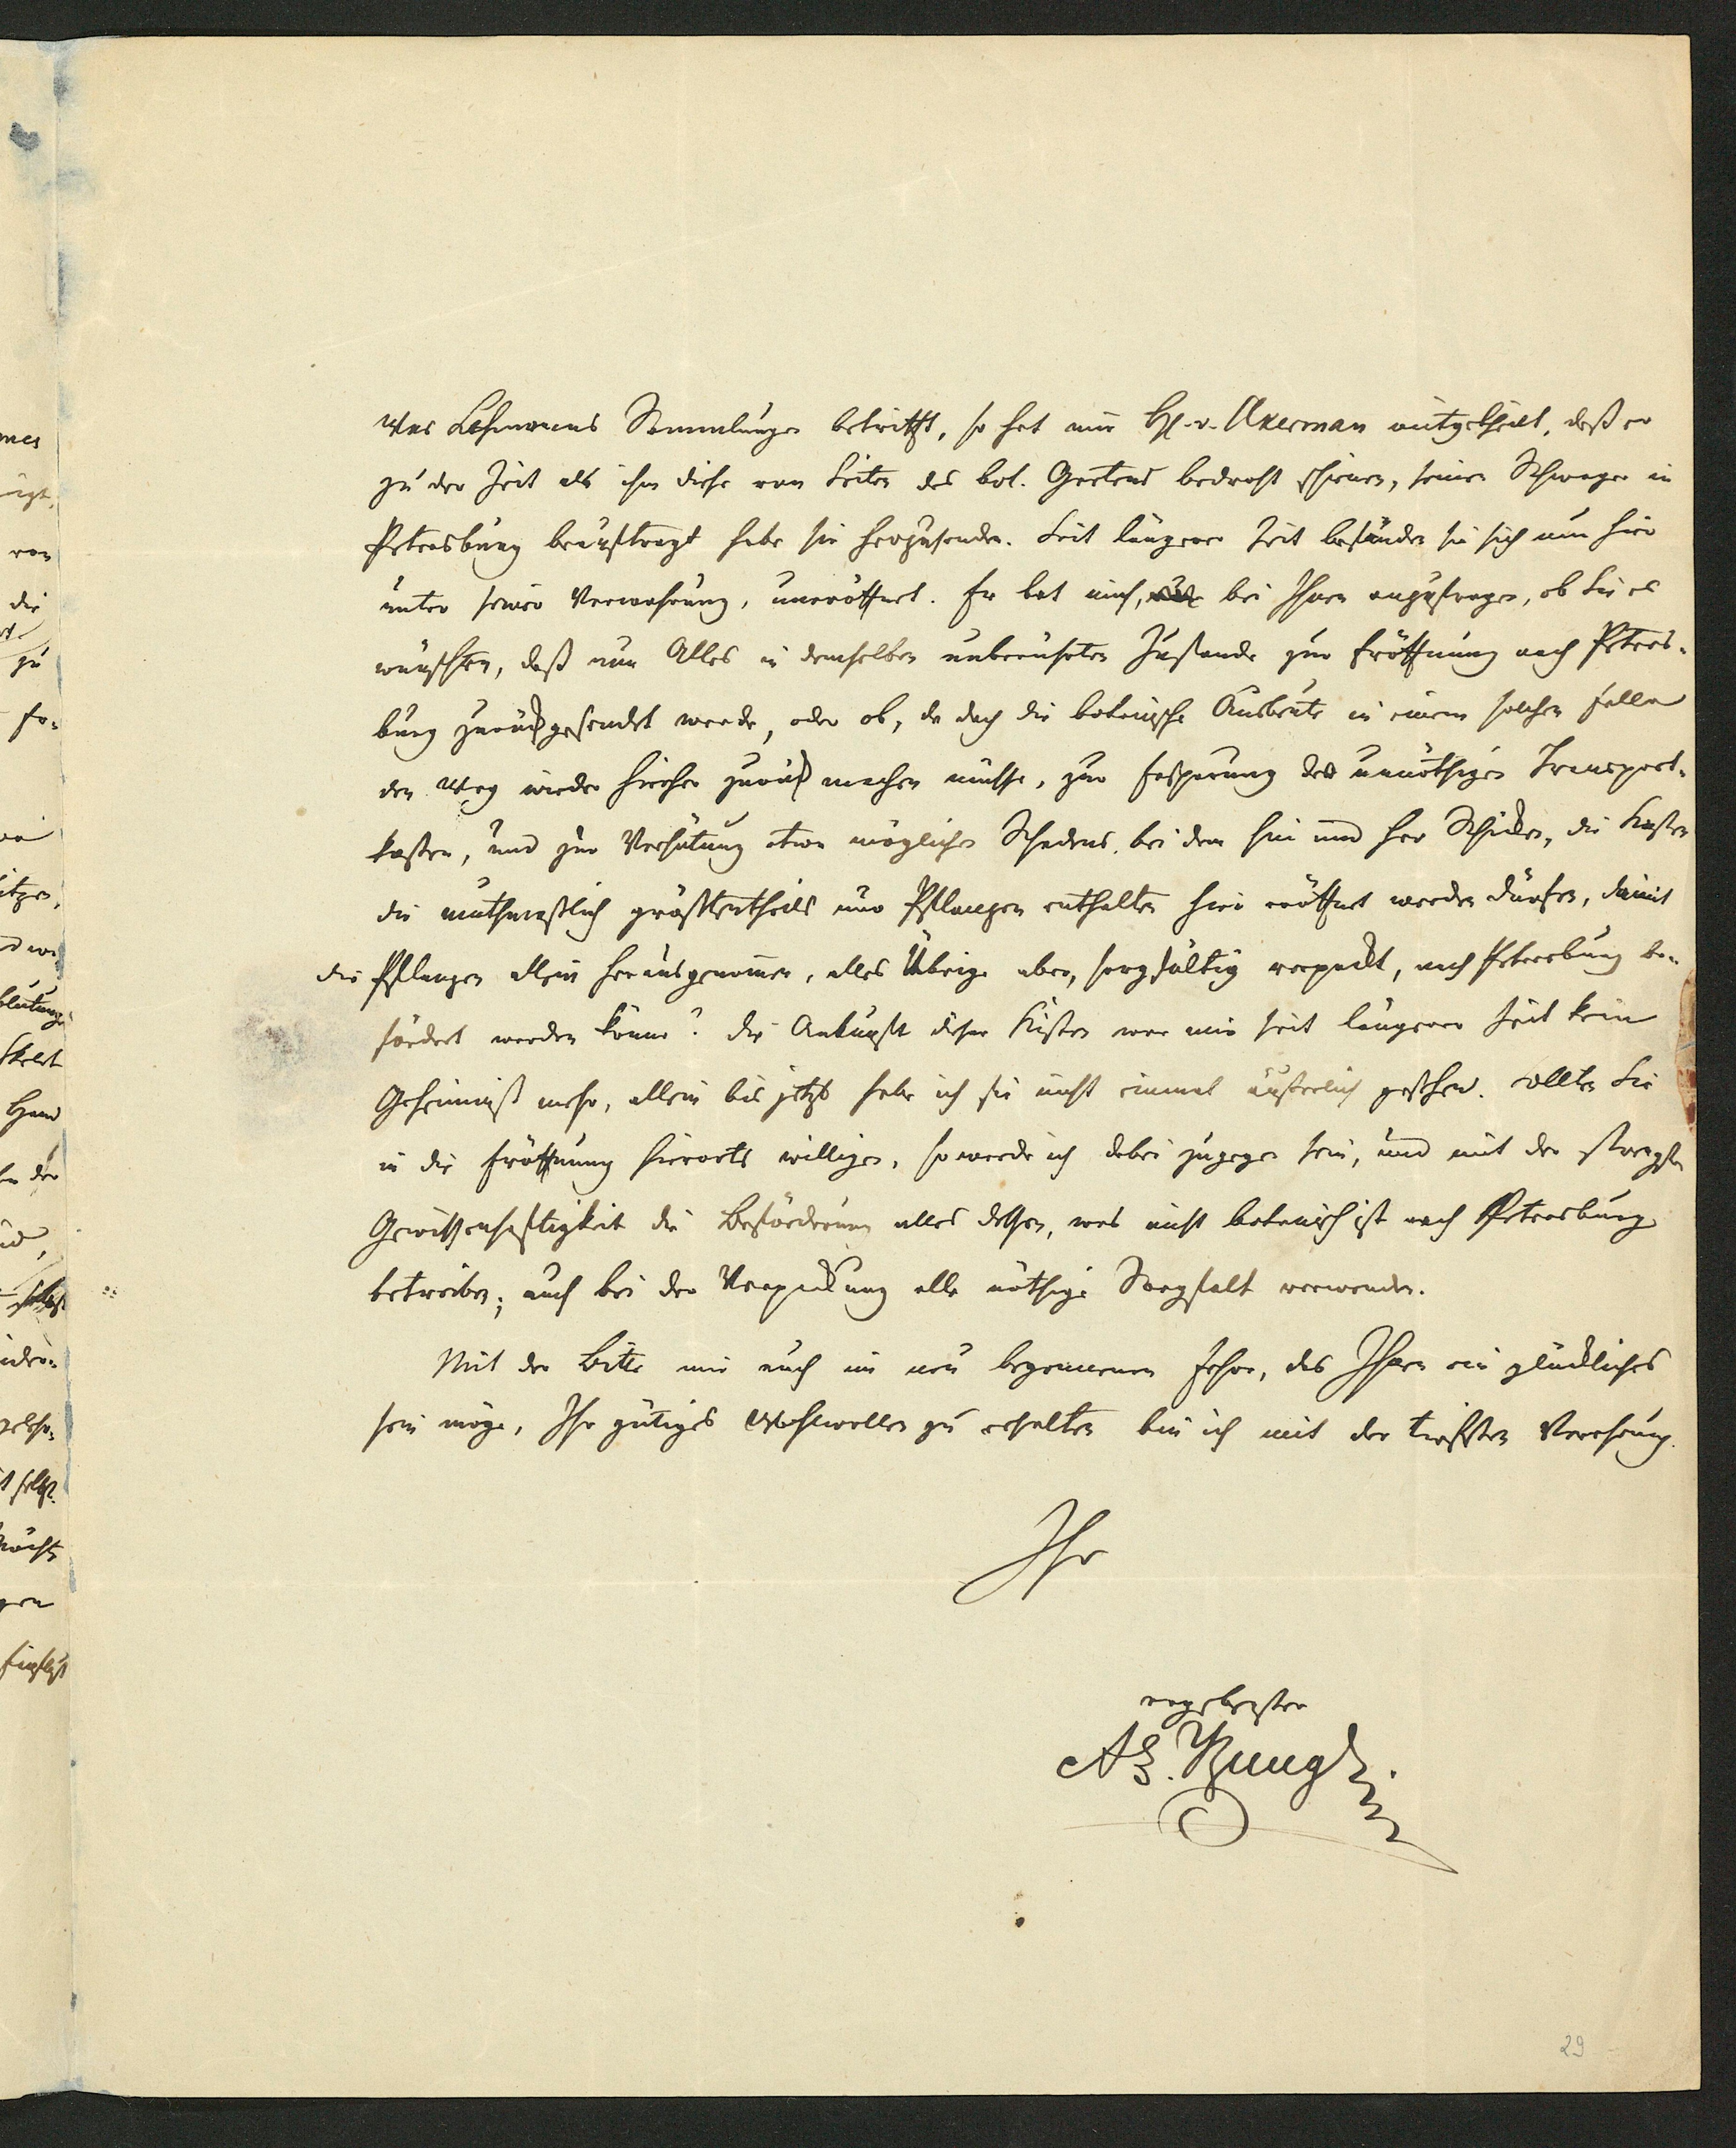 Was Lehmanns Sammlungen betrifft, so hat mir H. v. Akerman mitgetheilt, daß er
zu der Zeit als ihm diese von Seiten des bot. Gartens bedroht schienen, seinen Schwager in
Petersburg beauftragt habe sie herzusenden. Seit längerer Zeit befänden sie sich nun hier
unter seiner Verwahrung, uneröffnet. Er bat mich, bei Ihnen anzufragen, ob Sie es
wünschten, daß nun Alles in demselben unberührten Zustande zur Eröffnung nach Peters-
burg zurückgesendet werde, oder ob, da doch die botanische Ausbeute in einem solchen Falle
den Weg wieder hierher zurück machen müsse, zur Ersparung des unnöthigen Transport-
kosten, und zur Verhütung etwa möglichen Schadens bei dem hin und her Schicken, die Kisten
die muthmaßlich größtentheils nur Pflanzen enthalten hier eröffnet werden dürfen, damit
die Pflanzen allein herausgenommen, alles Übrige aber, sorgfältig verpackt, nach Petersburg be-
fördert werden könne? Die Ankunft dieser Kisten war mir seit längerer Zeit kein
Geheimniß mehr, allein bis jetzt habe ich sie nicht einmal äußerlich gesehen. Sollten Sie
in die Eröffnung hierorts willigen, so werde ich dabei zugegen sein, und mit der strengsten
Gewissenhaftigkeit die Beförderung alles dessen, was nicht botanisch ist nach Petersburg
betreiben; auch bei der Verpackung alle nöthige Sorgfalt verwenden.
Mit der Bitte mir auch im neu begonnenen Jahre, das Ihnen ein glückliches
sein möge, Ihr gütiges Wohlwollen zu erhalten bin ich mit der tiefsten Verehrung
Ihr
ergebenster
Al. Bunge
29